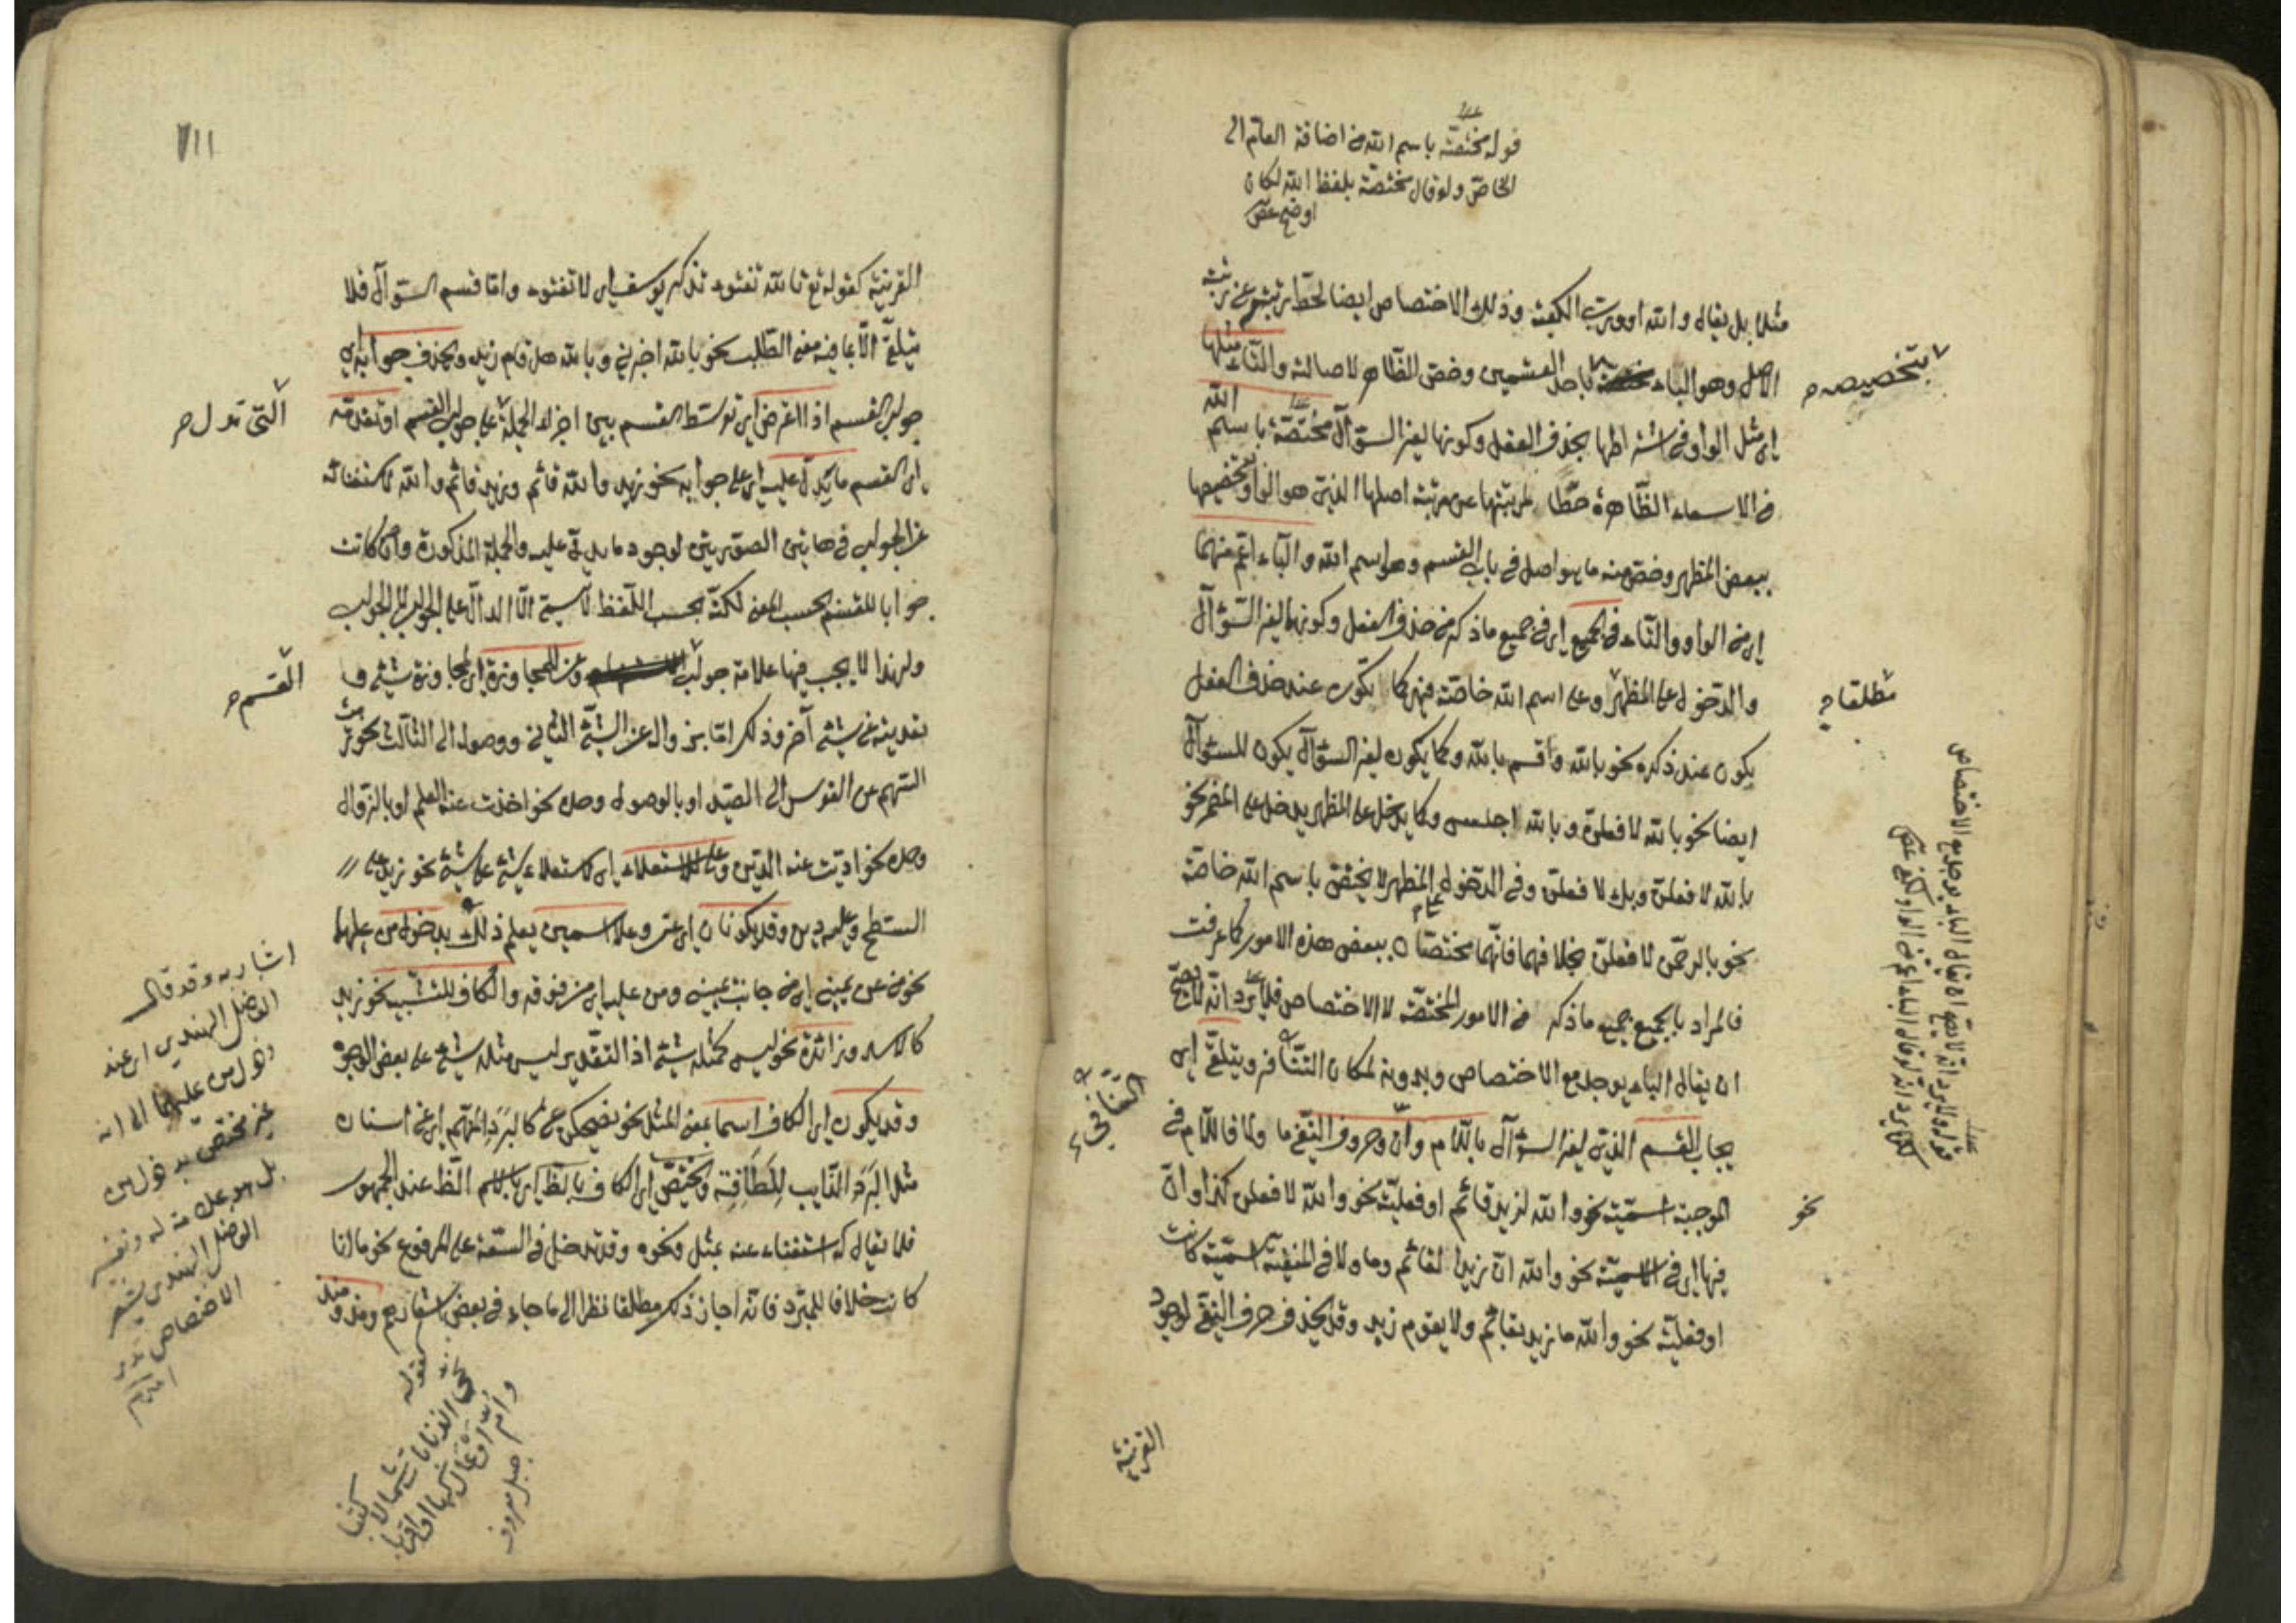 قوله مختصة باسم الله من اضافة العام الى
الخاص ولو قال مختصة بلفظ الله لكان
اوضح عص
مثلا بل يقال والله او ورب الكعبة وذلك الاختصاص ايضا لحط رتبته عن رتبة
الاصل وهو الباء بتخصيصه باحد القسمين وخص الظاهر لاصالته والتاء مثلها
اى مثل الواو فى اشتراطها بحذف الفعل وكونها لغير السؤال مختصة باسم الله
فى الاسماء الظاهرة حطا لمرتبتها عن مرتبة اصلها الذى هو الواو بتخصيصها
ببعض المظهر وخص منه ما هو اصل فى باب القسم وهو اسم الله والباء اعم منهما
اى من الواو والتاء فى الجميع اى فى جميع ما ذكر من حذف الفعل وكونها لغير السؤال
والدخول على المظهر مطلقا وعلى اسم الله خاصة فهى كما تكون عند حذف الفعل
يكون عند ذكره نحو بالله واقسم بالله وكما يكون لغير السؤال يكون للسؤال
ايضا نحو بالله لافعلن وبالله اجلس وكما يدخل على المظهر يدخل على المضمر نحو
بالله لافعلن وبك لافعلن وفى الدخول على المظهر لا يختص باسم الله خاصة
نحو بالرحمن لافعلن بخلافهما فانهما مختصان ببعض هذه الامور كما عرفت
فالمراد بالجميع جميع ما ذكر من الامور المختصة لا الاختصاص فلا يرد انه لا يصح
ان يقال الباء يوجد مع الاختصاص وبدونه لمكان التنافى ويتلقى اى
يجاب القسم الذى لغير السؤال باللام وان وحروف النفى ما ولا فاللام فى
الموجبة اسمية نحو والله لزيد قائم او فعلية نحو والله لافعلن كذا وان
فيها اى فى الاسمية نحو والله ان زيدا لقائم وما ولا فى المنفية اسمية كانت
او فعلية نحو والله ما زيد بقائم ولا يقوم زيد وقد يحذف حرف النفى لوجود
القرينة
بتخصيصه
مطلقا
نحو
التنافى
قوله فلا يرد انه لا يصح ان يقال الباء يوجد مع الاختصاص
١١١
القرينة كقوله تع تالله تفتؤ تذكر يوسف اى لا تفتؤ واما قسم السؤال فلا
يتلقى الا بما فيه معنى الطلب نحو بالله اخبرنى وبالله هل قام زيد ويحذف جوابه اى
جواب القسم اذا اعترض اى توسط القسم بين اجزاء الجملة على جواب القسم او تقدمه
اى القسم ما يدل عليه اى على جوابه نحو زيد والله قائم وزيد قائم والله لاستغنائه
عن الجواب فى هاتين الصورتين لوجود ما يدل عليه والجملة المذكورة وان كانت
جوابا للقسم بحسب المعنى لكنه بحسب اللفظ لا يسمى الا الدال على الجواب لا الجواب
ولهذا لا يجب فيها علامة جواب القسم وعن للمجاوزة اى لمجاوزة شىء و
تعديته عن شىء آخر وذلك اما بزواله عن الشىء الثانى ووصوله الى الثالث نحو رميت
السهم عن القوس الى الصيد او بالوصول وحده نحو اخذت عنه العلم او بالزوال
وحده نحو اديت عنه الدين وعلى للاستعلاء اى لاستعلاء شىء على شىء نحو زيد على
السطح وعليه دين وقد يكونان اى عن وعلى اسمين يعلم ذلك بدخول من عليهما
نحو من عن يمينى اى من جانب يمينى ومن عليه اى من فوقه والكاف للتشبيه نحو زيد
كالاسد وزائدة نحو ليس كمثله شىء اذ التقدير ليس مثله شىء على بعض الوجوه
وقد يكون اى الكاف اسما بمعنى المثل نحو يضحكن عن كالبرد المنهم اى عن اسنان
مثل البرد الذايب للطافته ويختص اى الكاف بالظاهر اى بالاسم الظ عند الجمهور
فلا يقال كه استغناء عنه بمثل ونحوه وقد تدخل فى السعة على المرفوع نحو ما انا
كانت خلافا للمبرد فانه اجاز ذلك مطلقا نظرا الى ما جاء فى بعض اشعارهم ومذ ومنذ
التى تدل
القسم
اشار به وقد قال
الفاضل الهندى اى عند
دخول من عليهما الى انه
غير مختص بدخول من
بل هو علامة له وتفسير
الفاضل الهندى يشعر
الاختصاص
كقوله
نحى الذنابات شمالا كثبا
وام اوعال كها او اقربا